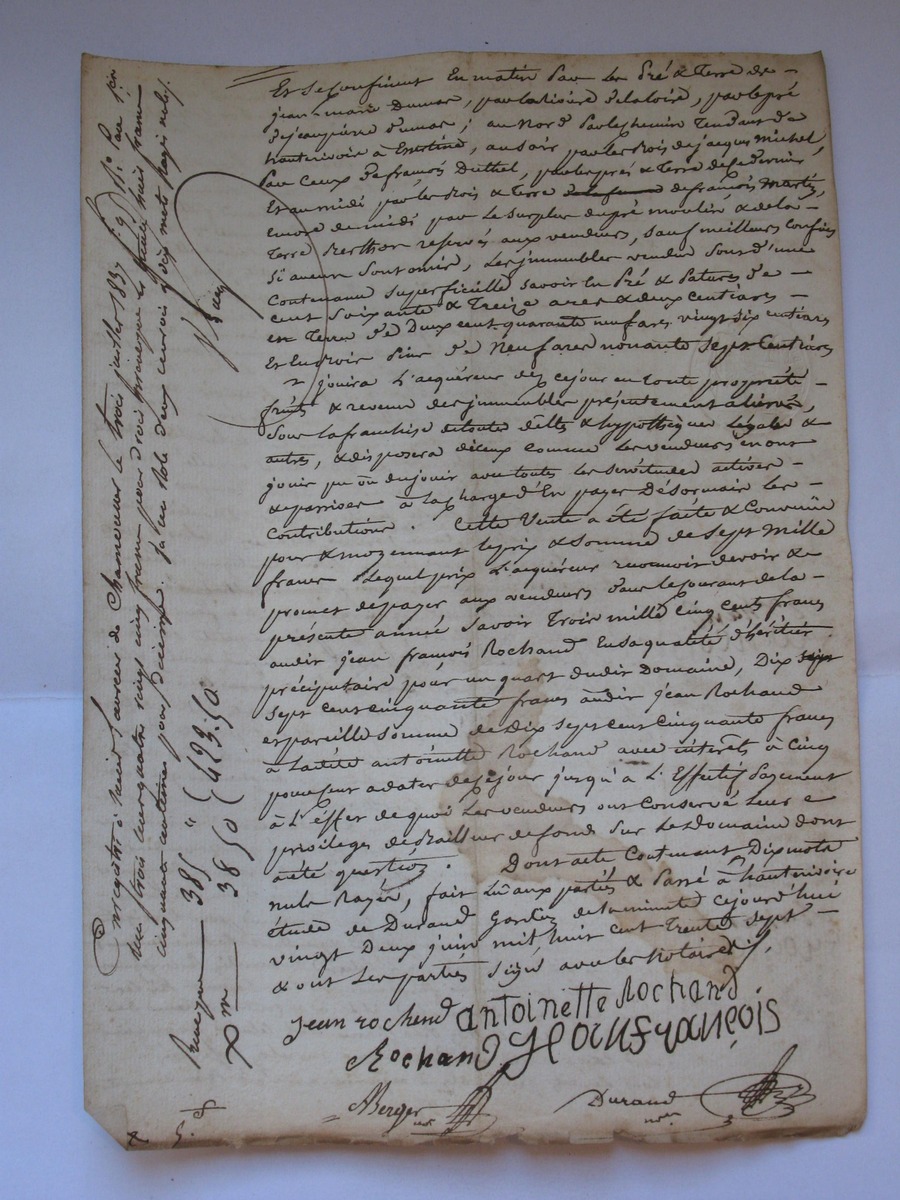 Et se confinent En matin Par les Pré & Terre de
jean-marie Dumas, par la rivière de la loire, par le pré
de jean pierre dumas; au Nord Par le chemin Tendant de
hauterivoir à Essertine, au soir par les bois de jacques Michel,
Par Ceux de françois Duthel, par les prés & Terre de Ce dernier
Et au midi par les bois & terre de françois Martin,
encore de midi par le surplus du pré moulin & de la
Terre Berthon réservés aux vendeurs, sauf meilleurs confins
Si aucun sont omis, Les immeubles vendus sont d'une
Contenance Superficielle savoir en Pré & Patures de
cent Soixante & Treize ares & deux centiares
en Terre de Deux cent quarante neuf ares vingt six centiares
et en bois Pins de Neuf ares nonante sept Centiares
jouira L'acquéreur dès ce jour en toute propriété
fruits & revenus des immeubles présentement aliénés,
Sous la franchise de toute dette & hypothèques Légale &
autres, & disposera d'iceux comme Les vendeurs en ont
joui pu ou du jouir avec toutes les servitudes actives
& passives à la charge d'En payer Désormais les
Contributions. Cette Vente a été faite & Convenue
pour & moyennant le prix & Somme de Sept Mille
francs Lequel prix L'acquéreur reconnoit devoir &
promet de payer aux vendeurs dans le courant de la
présente année Savoir Trois mille Cinq Cents francs
audit jean françois Rochand En sa qualité d'héritier
précipuaire pour un quart dudit Domaine, Dix
sept cent cinquante francs audit jean Rochand
et pareille Somme de Dix sept cent Cinquante francs
à Ladite antoinette Rochand avec intérêts à Cinq
pour cent à dater de ce jour jusqu'à L'Effectif Payement
à L'effet de quoi Les vendeurs ont Conservé Leur
privilège de Bailleur de fond Sur Le Domaine dont
a été question. Dont acte Contenant Dix mots
nuls Rayés, fait Lu aux parties & Passé à hauterivoire
étude de Durand Gardien de la minute cejourd'hui
vingt Deux juin mil huit cent Trente Sept
& ont Les parties Signé avec les Notaires
jean rochand antoinette Rochand
Rochand Jean françois
Berger Durand
Enregistré à Saint Laurent de Chamousset le trois juillet 1837
cinquante centimes pour dixième
Principal 385 "
Dme 38 50
423.50